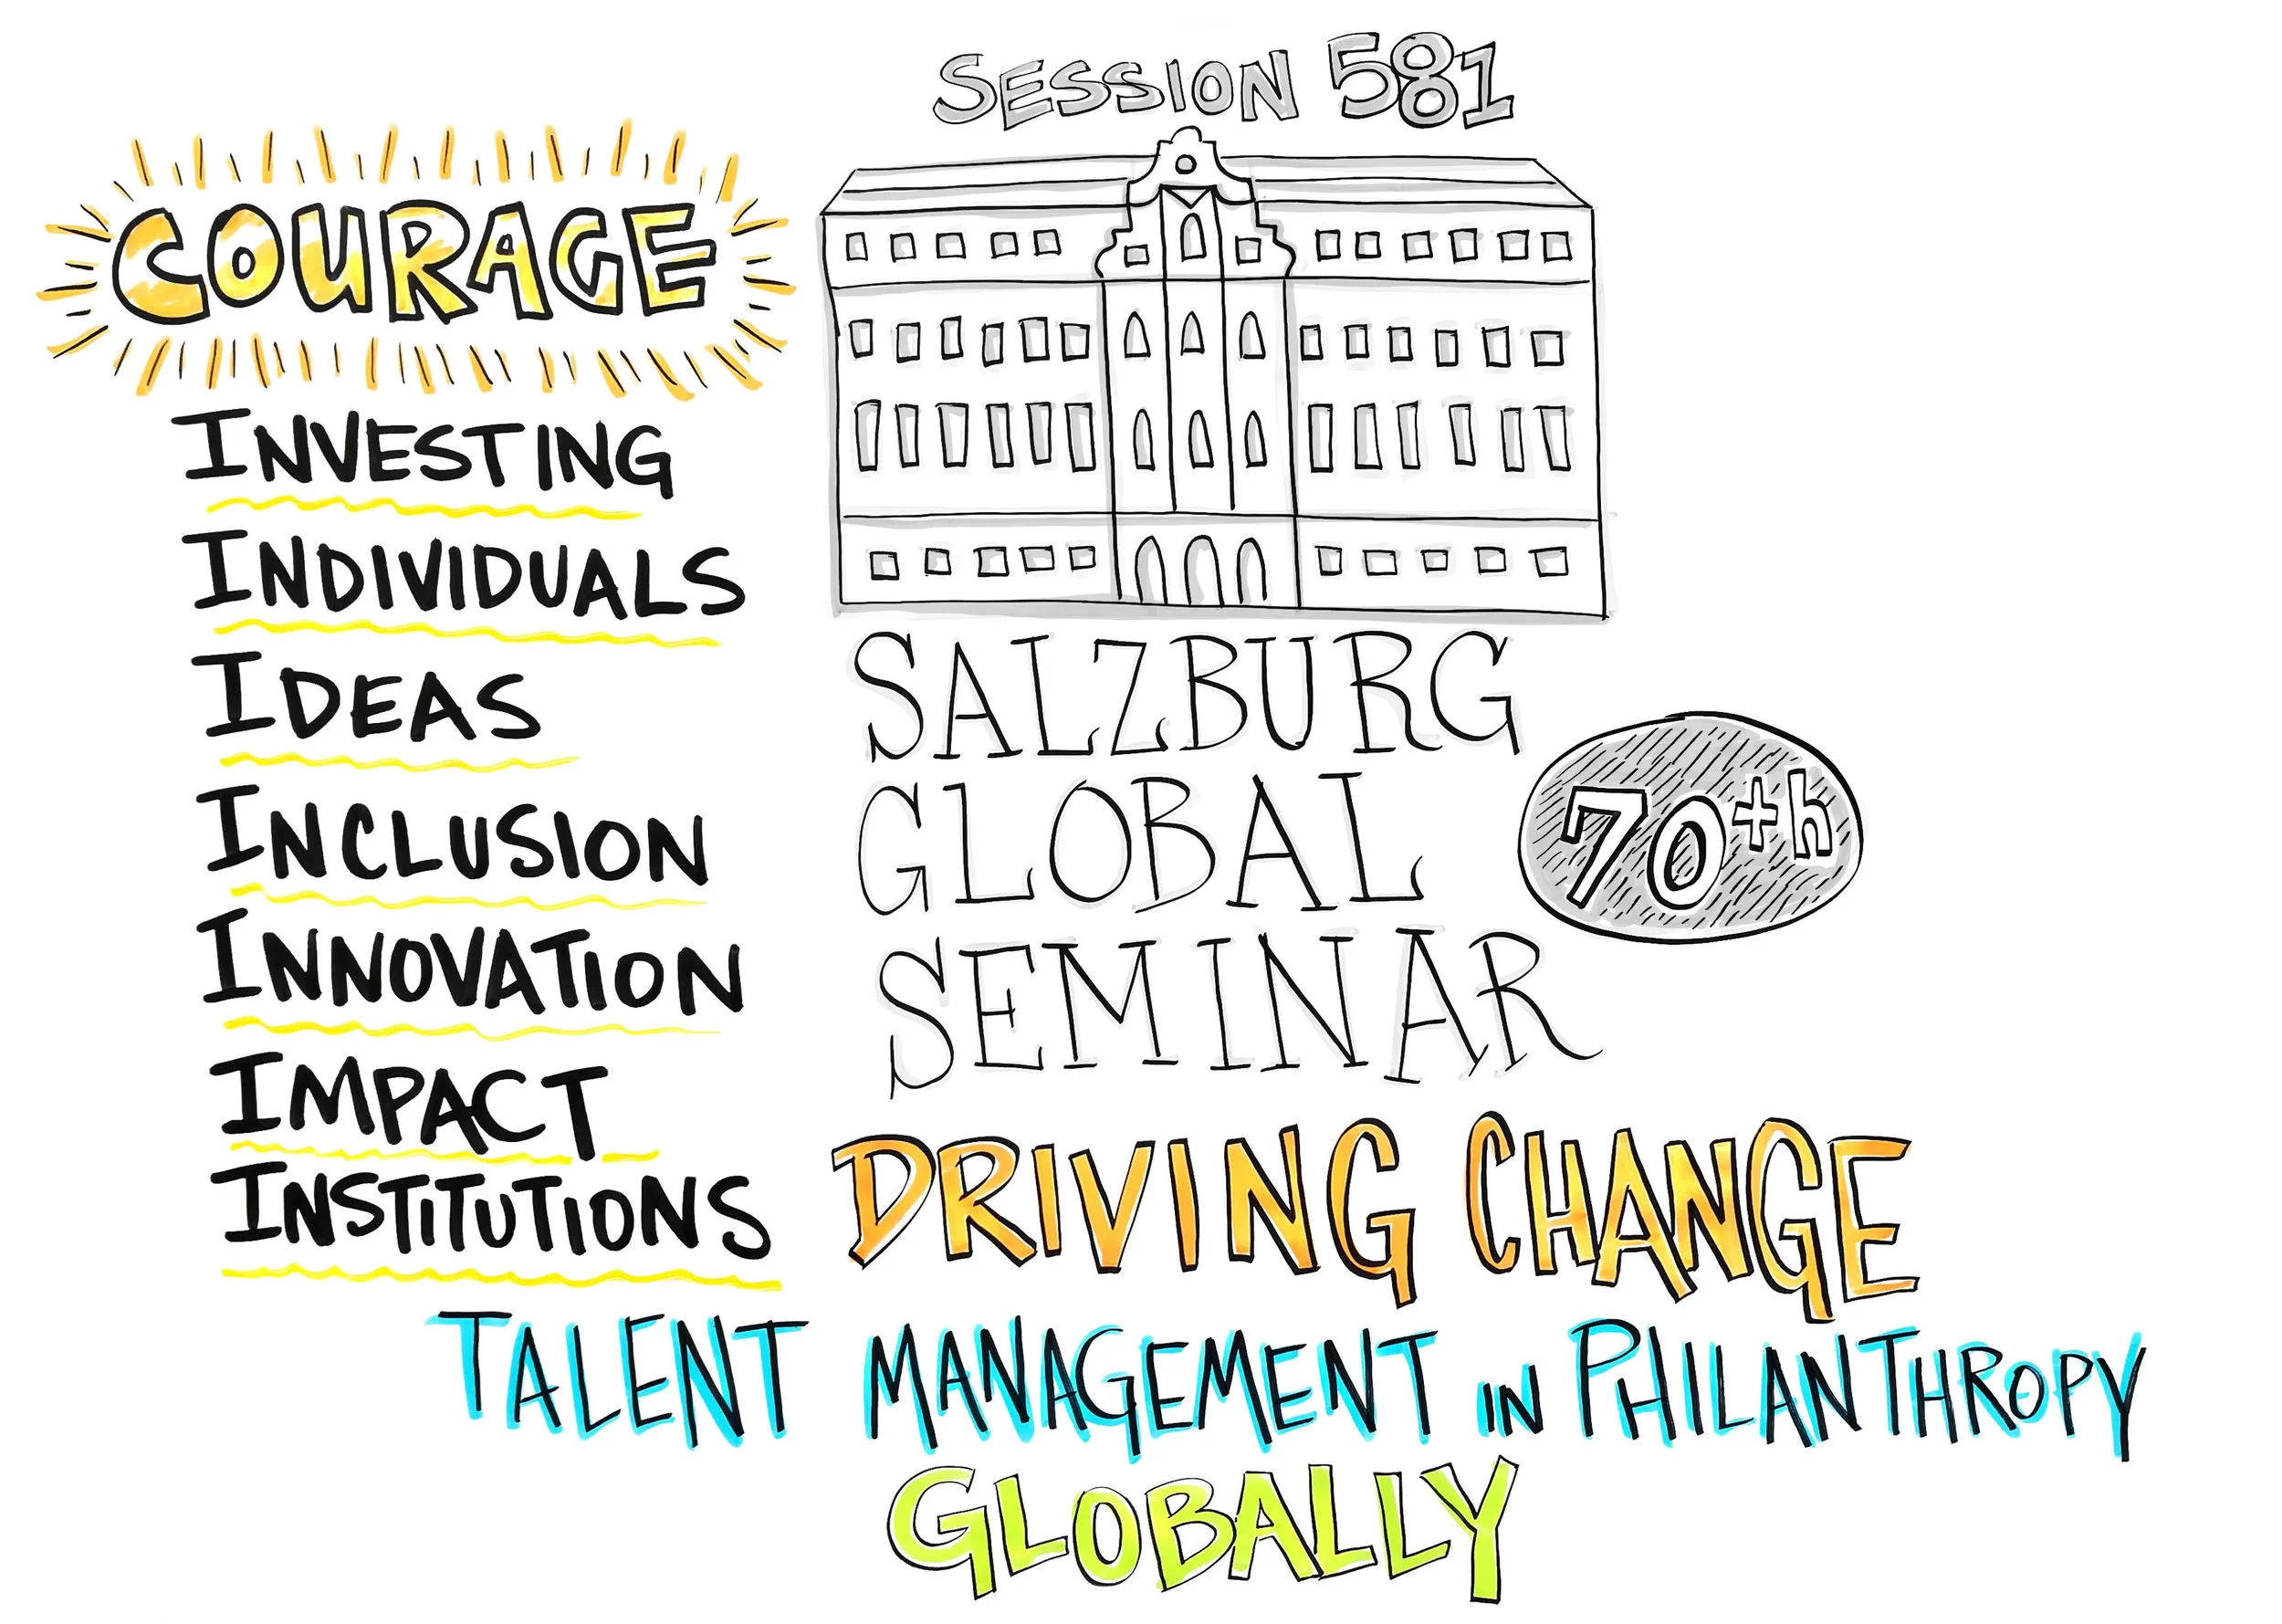 SESSION 581
COURAGE
INVESTING
INDIVIDUALS
IDEAS
INCLUSION
INNOVATION
IMPACT
INSTITUTIONS
SALZBURG
GLOBAL
SEMINAR
70th
DRIVING CHANGE
TALENT MANAGEMENT IN PHILANTHROPY
GLOBALLY